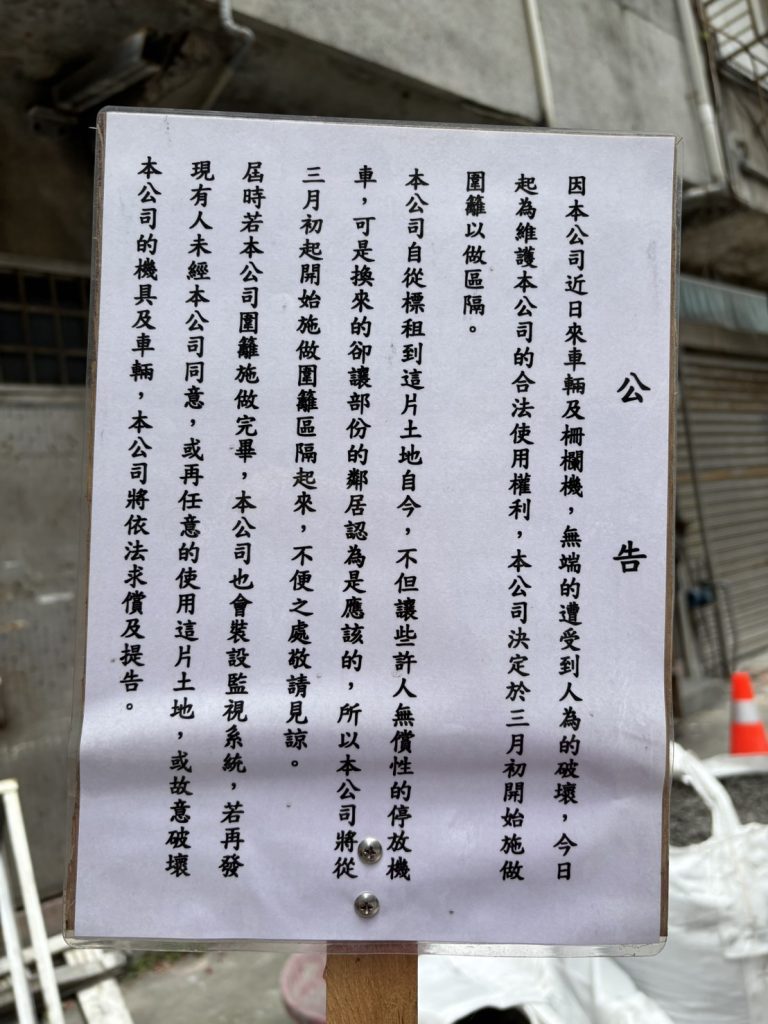 公告
因本公司近日來車輛及柵欄機，無端的遭受到人為的破壞，今日
起為維護本公司的合法使用權利，本公司決定於三月初開始施做
圍籬以做區隔。
本公司自從標租到這片土地自今，不但讓些許人無償性的停放機
車，可是換來的卻讓部份的鄰居認為是應該的，所以本公司將從
三月初起開始施做圍籬區隔起來，不便之處敬請見諒。
屆時若本公司圍籬施做完畢，本公司也會裝設監視系統，若再發
現有人未經本公司同意，或再任意的使用這片土地，或故意破壞
本公司的機具及車輛，本公司將依法求償及提告。